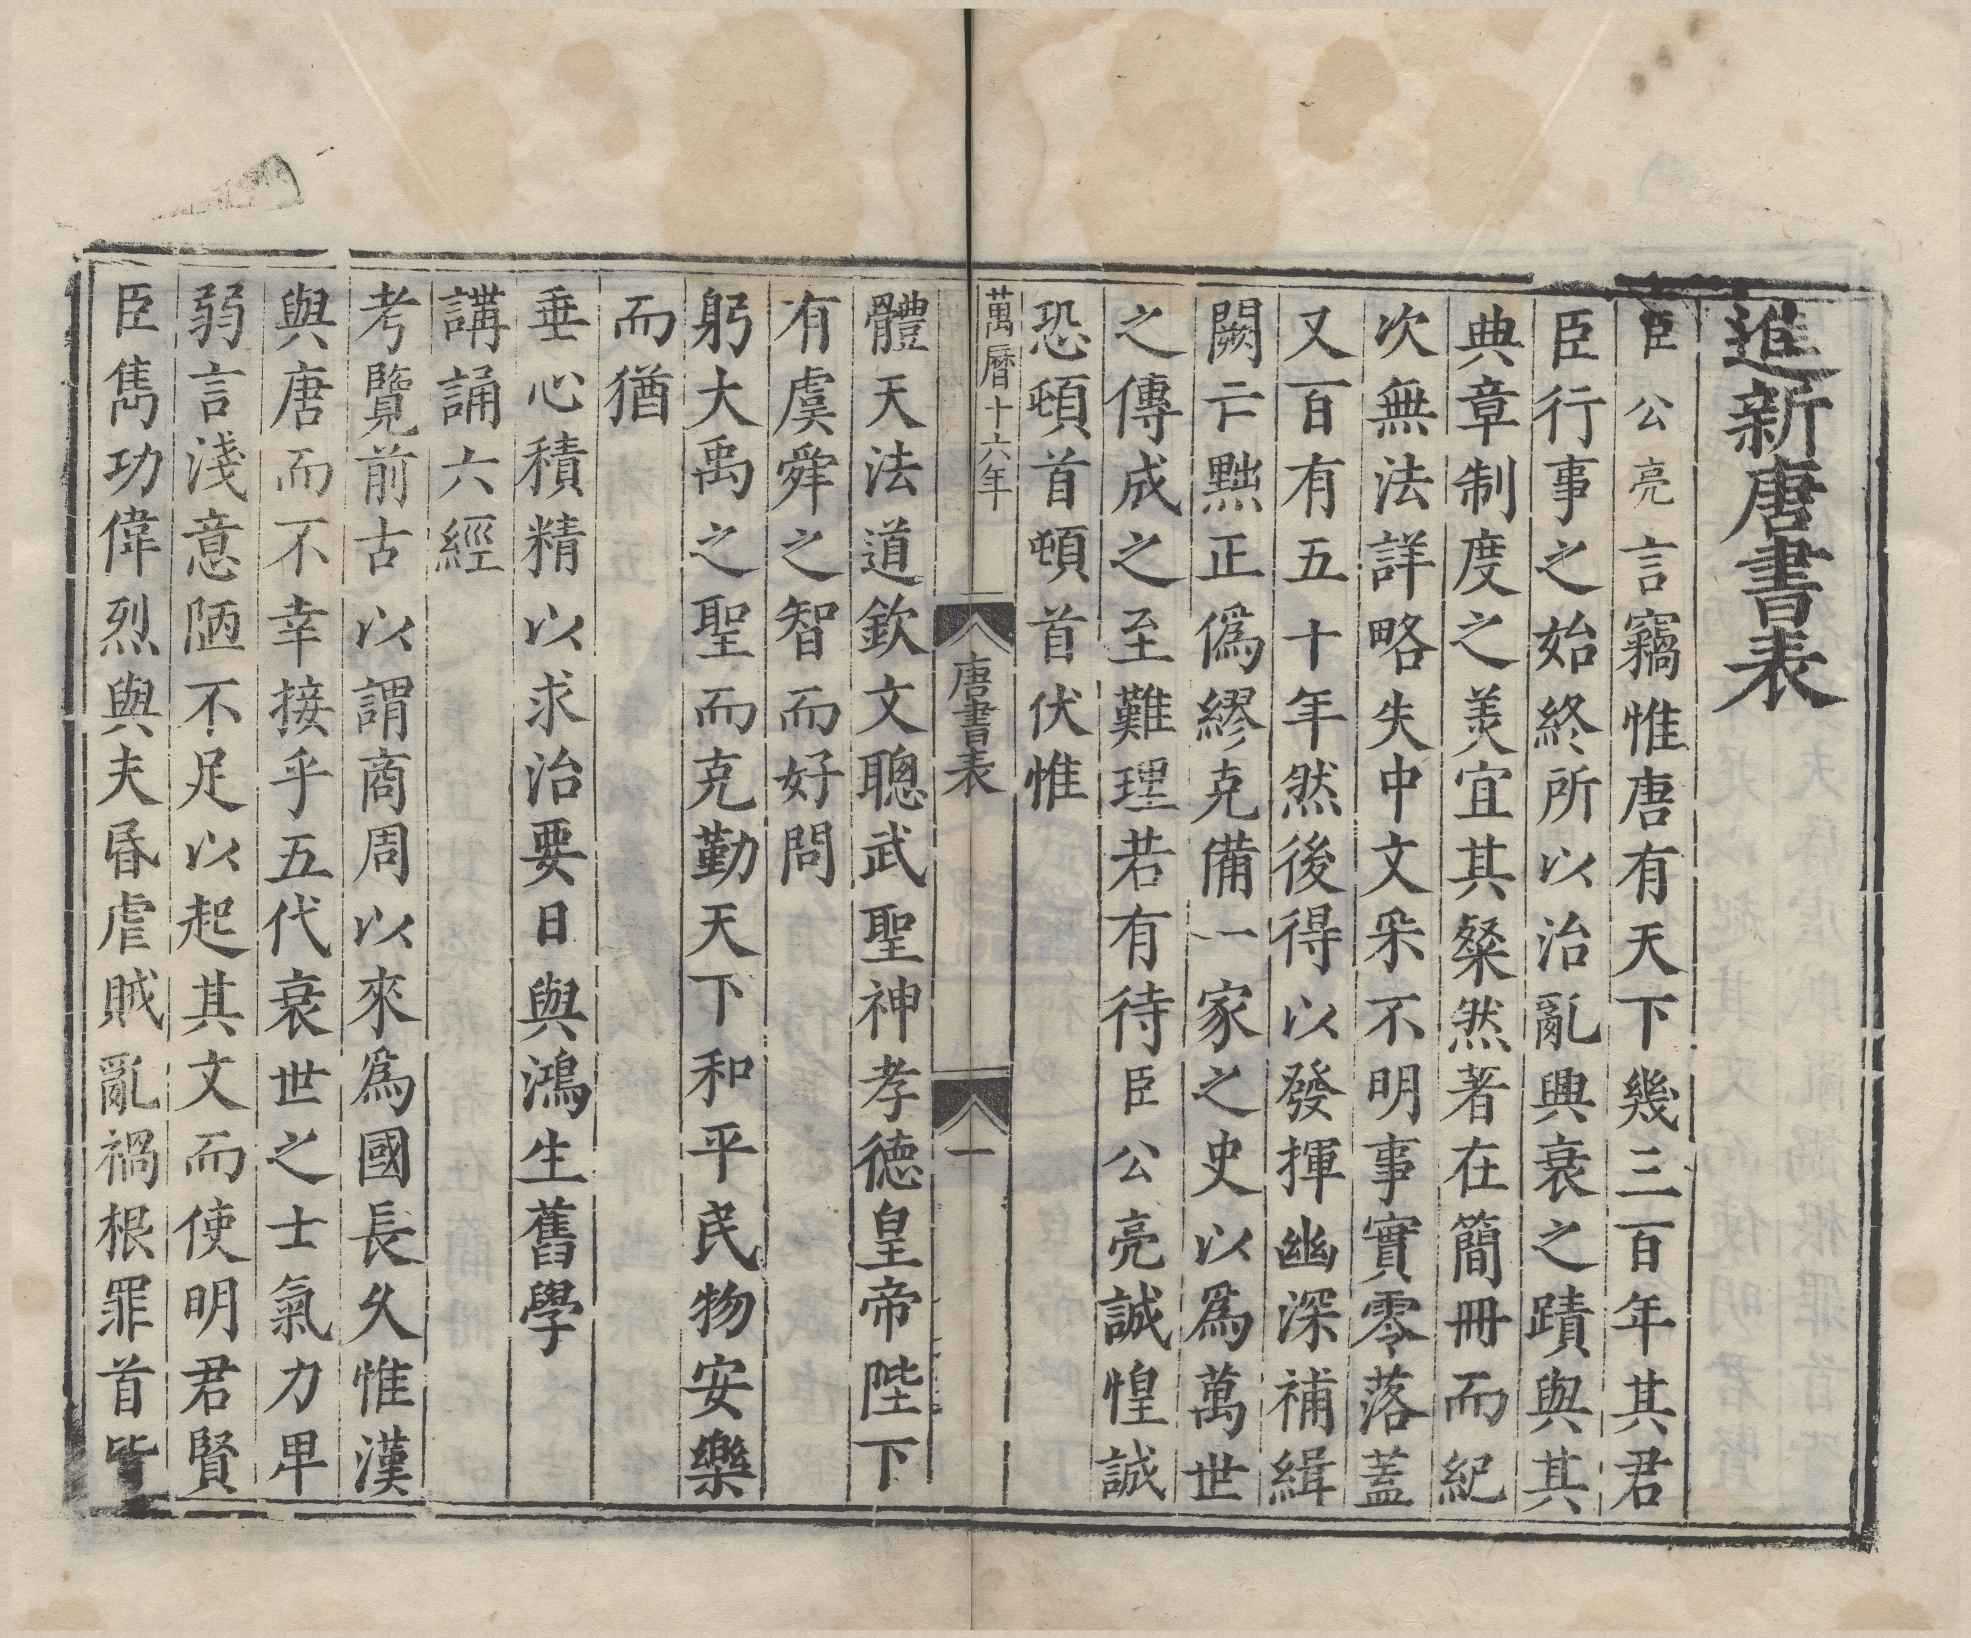 進新唐書表
臣公亮言竊惟唐有天下幾三百年其君
臣行事之始終所以治亂興衰之蹟與其
典章制度之羙宜其粲然著在簡冊而紀
次無法詳略失中文采不明事實零落葢
又百有五十年然後得以發揮幽深補緝
闕亡黜正僞繆克備一家之史以爲萬世
之傳成之至難理若有待臣公亮誠惶誠
恐頓首頓首伏惟
萬曆十六年
唐書表
一
體天法道欽文聰武聖神孝德皇帝陛下
有虞舜之智而好問
躬大禹之聖而克勤天下和平民物安樂
而猶
垂心積精以求治要日與鴻生舊學
講誦六經
考覽前古以謂商周以來爲國長久惟漢
與唐而不幸接乎五代衰世之士氣力卑
弱言淺意陋不足以起其文而使明君賢
臣雋功偉烈與夫昬虐賊亂禍根罪首皆